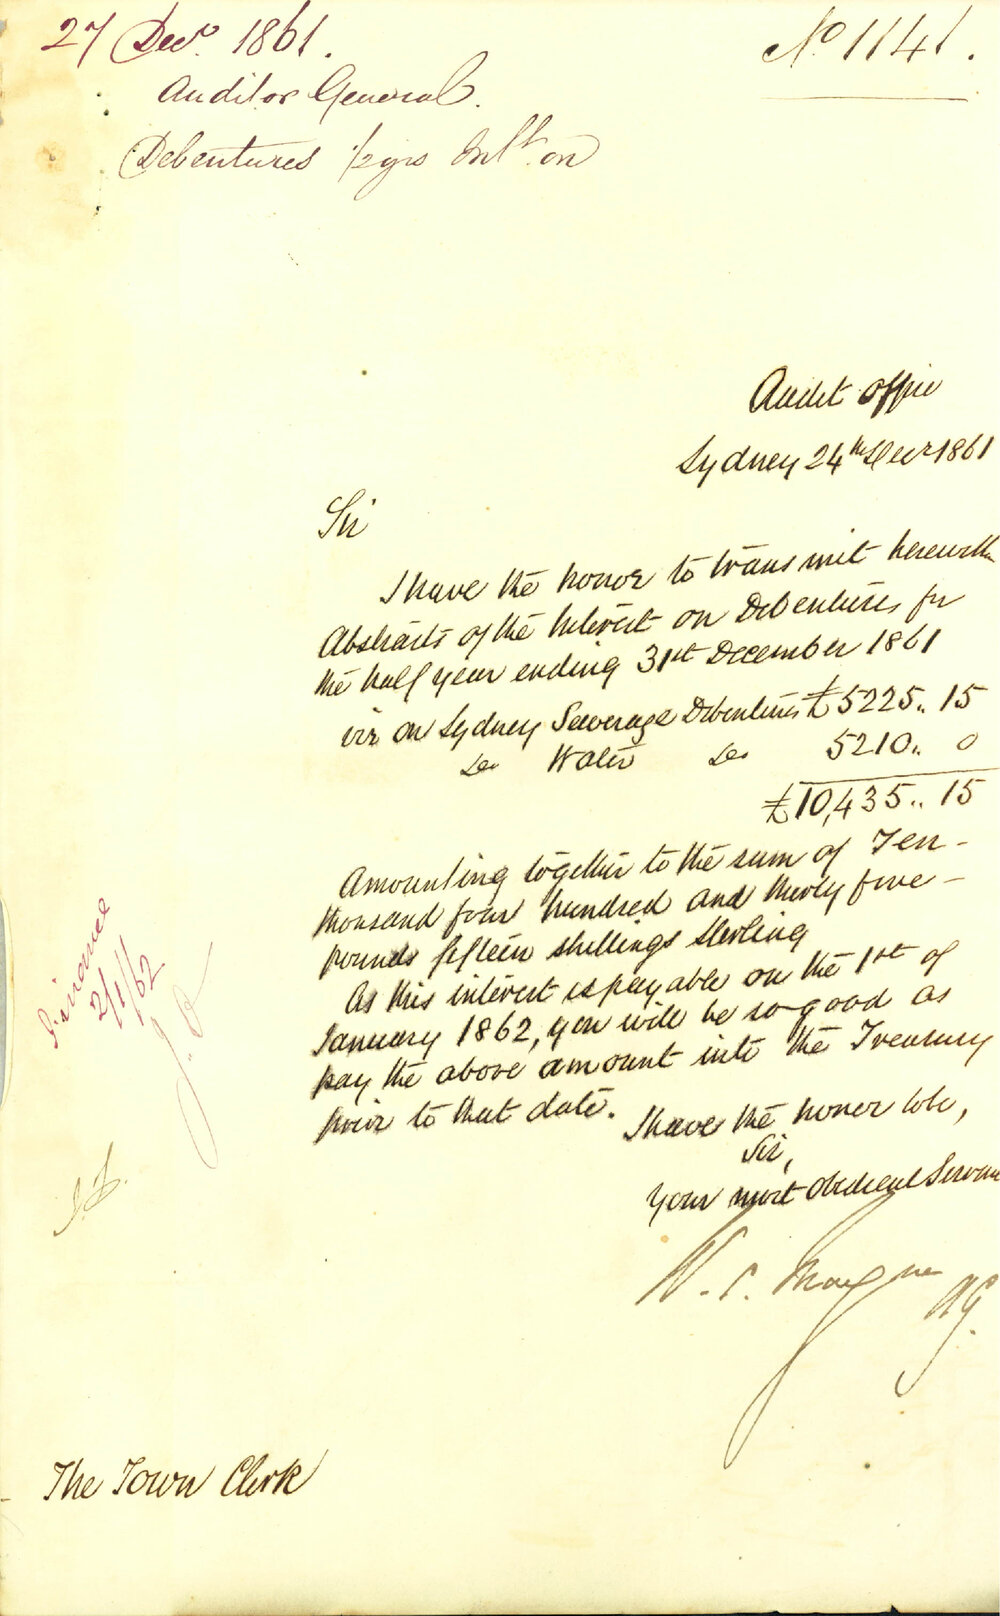 27 Decr. 1861.
No 1141.
Auditor General.
Debentures ½ yrs Intst. on
Audit Office
Sydney 24th Decr 1861
Sir
I have the honor to transmit herewith
Abstracts of the Interest on Debentures for
the half year ending 31st December 1861
viz on Sydney Sewerage Debentures £5225.. 15
Do Water Do 5210.. 0
£10,435.. 15
Amounting together to the sum of Ten-
thousand four hundred and thirty five-
pounds fifteen shillings sterling
As this interest is payable on the 1st of
January 1862, you will be so good as
pay the above amount into the Treasury
prior to that date.
I have the honor to be,
Sir,
Your most obedient Servant
W. C. Mayne
AG.
Finance
2/1/62
The Town Clerk